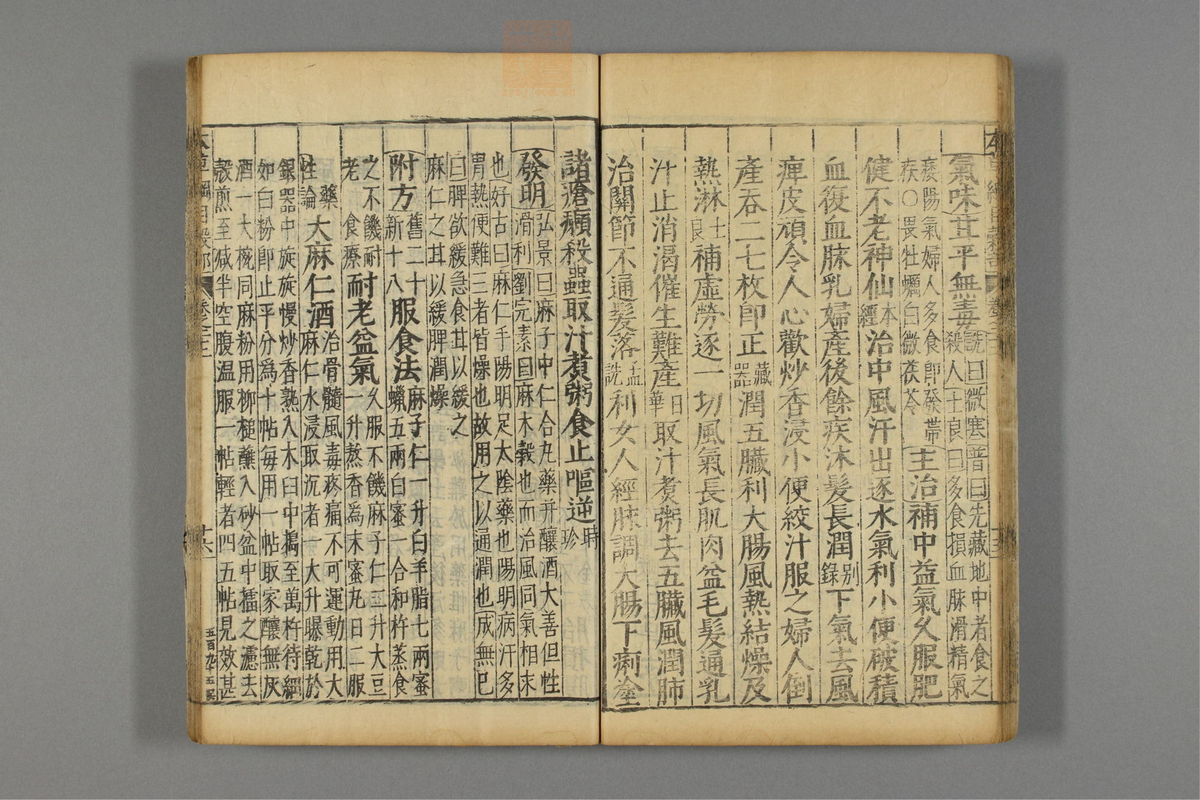 氣味甘平無毒詵曰微寒普曰先藏地中者食之殺人士良曰多食損血脉滑精氣
痿陽氣婦人多食即發帶疾○畏牡蠣白微茯苓主治補中益氣久服肥
健不老神仙本經治中風汗出逐水氣利小便破積
血復血脉乳婦產後餘疾沐髮長潤別錄下氣去風
痺皮頑令人心歡炒香浸小便絞汁服之婦人倒
產吞二七枚即正藏器潤五臟利大腸風熱結燥及
熱淋士良補虛勞逐一切風氣長肌肉益毛髮通乳
汁止消渴催生難產日華取汁煮粥去五臟風潤肺
治關節不通髮落孟詵利女人經脉調大腸下痢塗
諸瘡癩殺蟲取汁煮粥食止嘔逆時珍
發明弘景曰麻子中仁合丸藥并釀酒大善但性滑利劉完素曰麻木穀也而治風同氣相求
也好古曰麻仁手陽明足太陰藥也陽明病汗多胃熱便難三者皆燥也故用之以通潤也成無已
曰脾欲緩急食甘以緩之麻仁之甘以緩脾潤燥
附方舊二十新十八服食法麻子仁一升白羊脂七兩蜜蠟五兩白蜜一合和杵蒸食
之不饑耐老食療耐老益氣久服不饑麻子仁二升大豆一升熬香為末蜜丸日二服
藥性論大麻仁酒治骨髓風毒疼痛不可運動用大麻仁水浸取沉者一大升曝乾於
銀器中旋旋慢炒香熟入木臼中搗至萬杵待細如白粉即止平分為十帖每用一帖取家釀無灰
酒一大椀同麻粉用柳槌蘸入砂盆中擂之濾去殼煎至減半空腹溫服一帖輕者四五帖見效甚